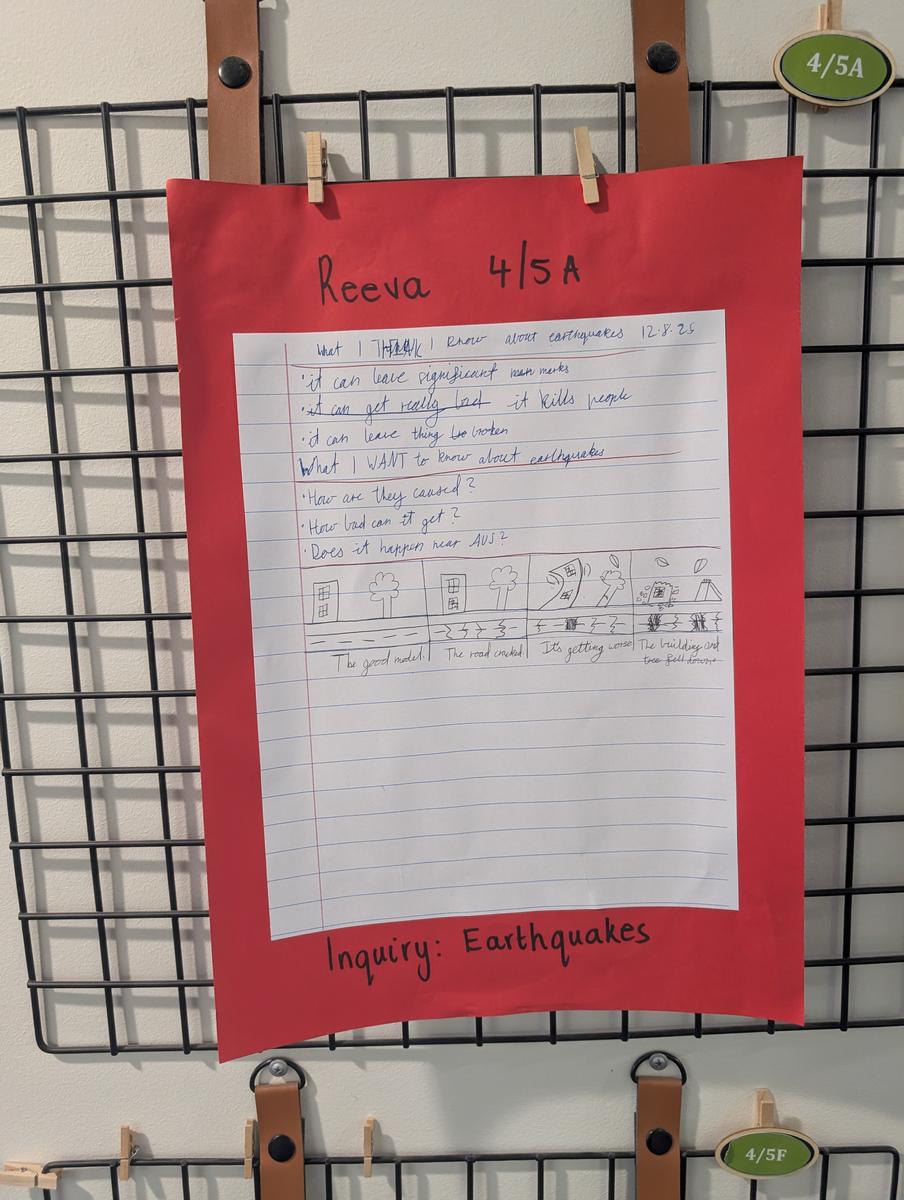 4/5A
Reeva 4/5A
What I THINK I know about earthquakes 12.8.25
·it can leave significant marks
·it can get really bad it kills people
·it can leave thing broken
What I WANT to know about earthquakes
·How are they caused?
·How bad can it get?
·Does it happen near AUS?
The good model.
The road cracked.
It's getting worse
The building and
tree fell down.
Inquiry: Earthquakes
4/5F